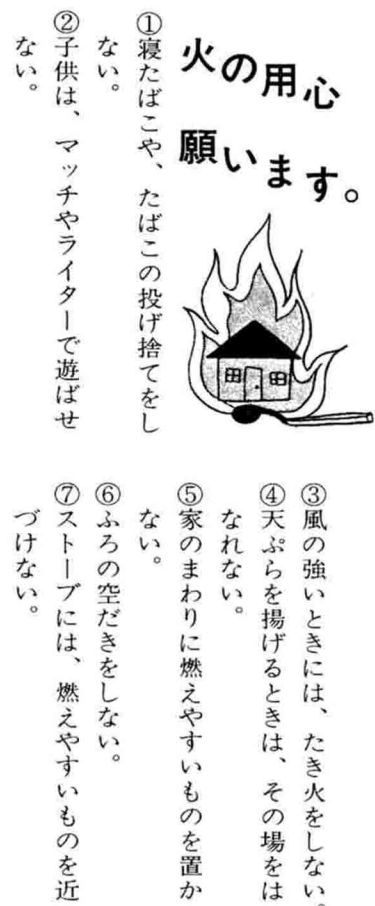 火の用心
願います。
①寝たばこや、たばこの投げ捨てをし
ない。
②子供は、マッチやライターで遊ばせ
ない。
③風の強いときには、たき火をしない。
④天ぷらを揚げるときは、その場をは
なれない。
⑤家のまわりに燃えやすいものを置か
ない。
⑥ふろの空だきをしない。
⑦ストーブには、燃えやすいものを近
づけない。